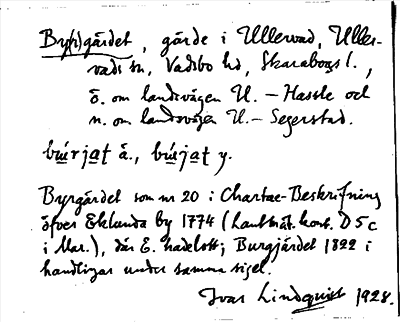 By(r)gärdet, gärde i Ullervad, Uller-
vads sn, Vadsbo hd, Skaraborgs l.,
ö. om landsvägen U. – Hassle och
n. om landsvägen U. – Segerstad.
búrjat ä., búrjat y.
Byrgärdet som nr 20 i Chartae-Beskrifning
öfver Eklunda by 1774 (Lantmät. kont. D 5c
i Mar.), där E. hade lott; Burgjärdet 1822 i
handlingar under samma sigel.
Ivar Lindquist 1928.